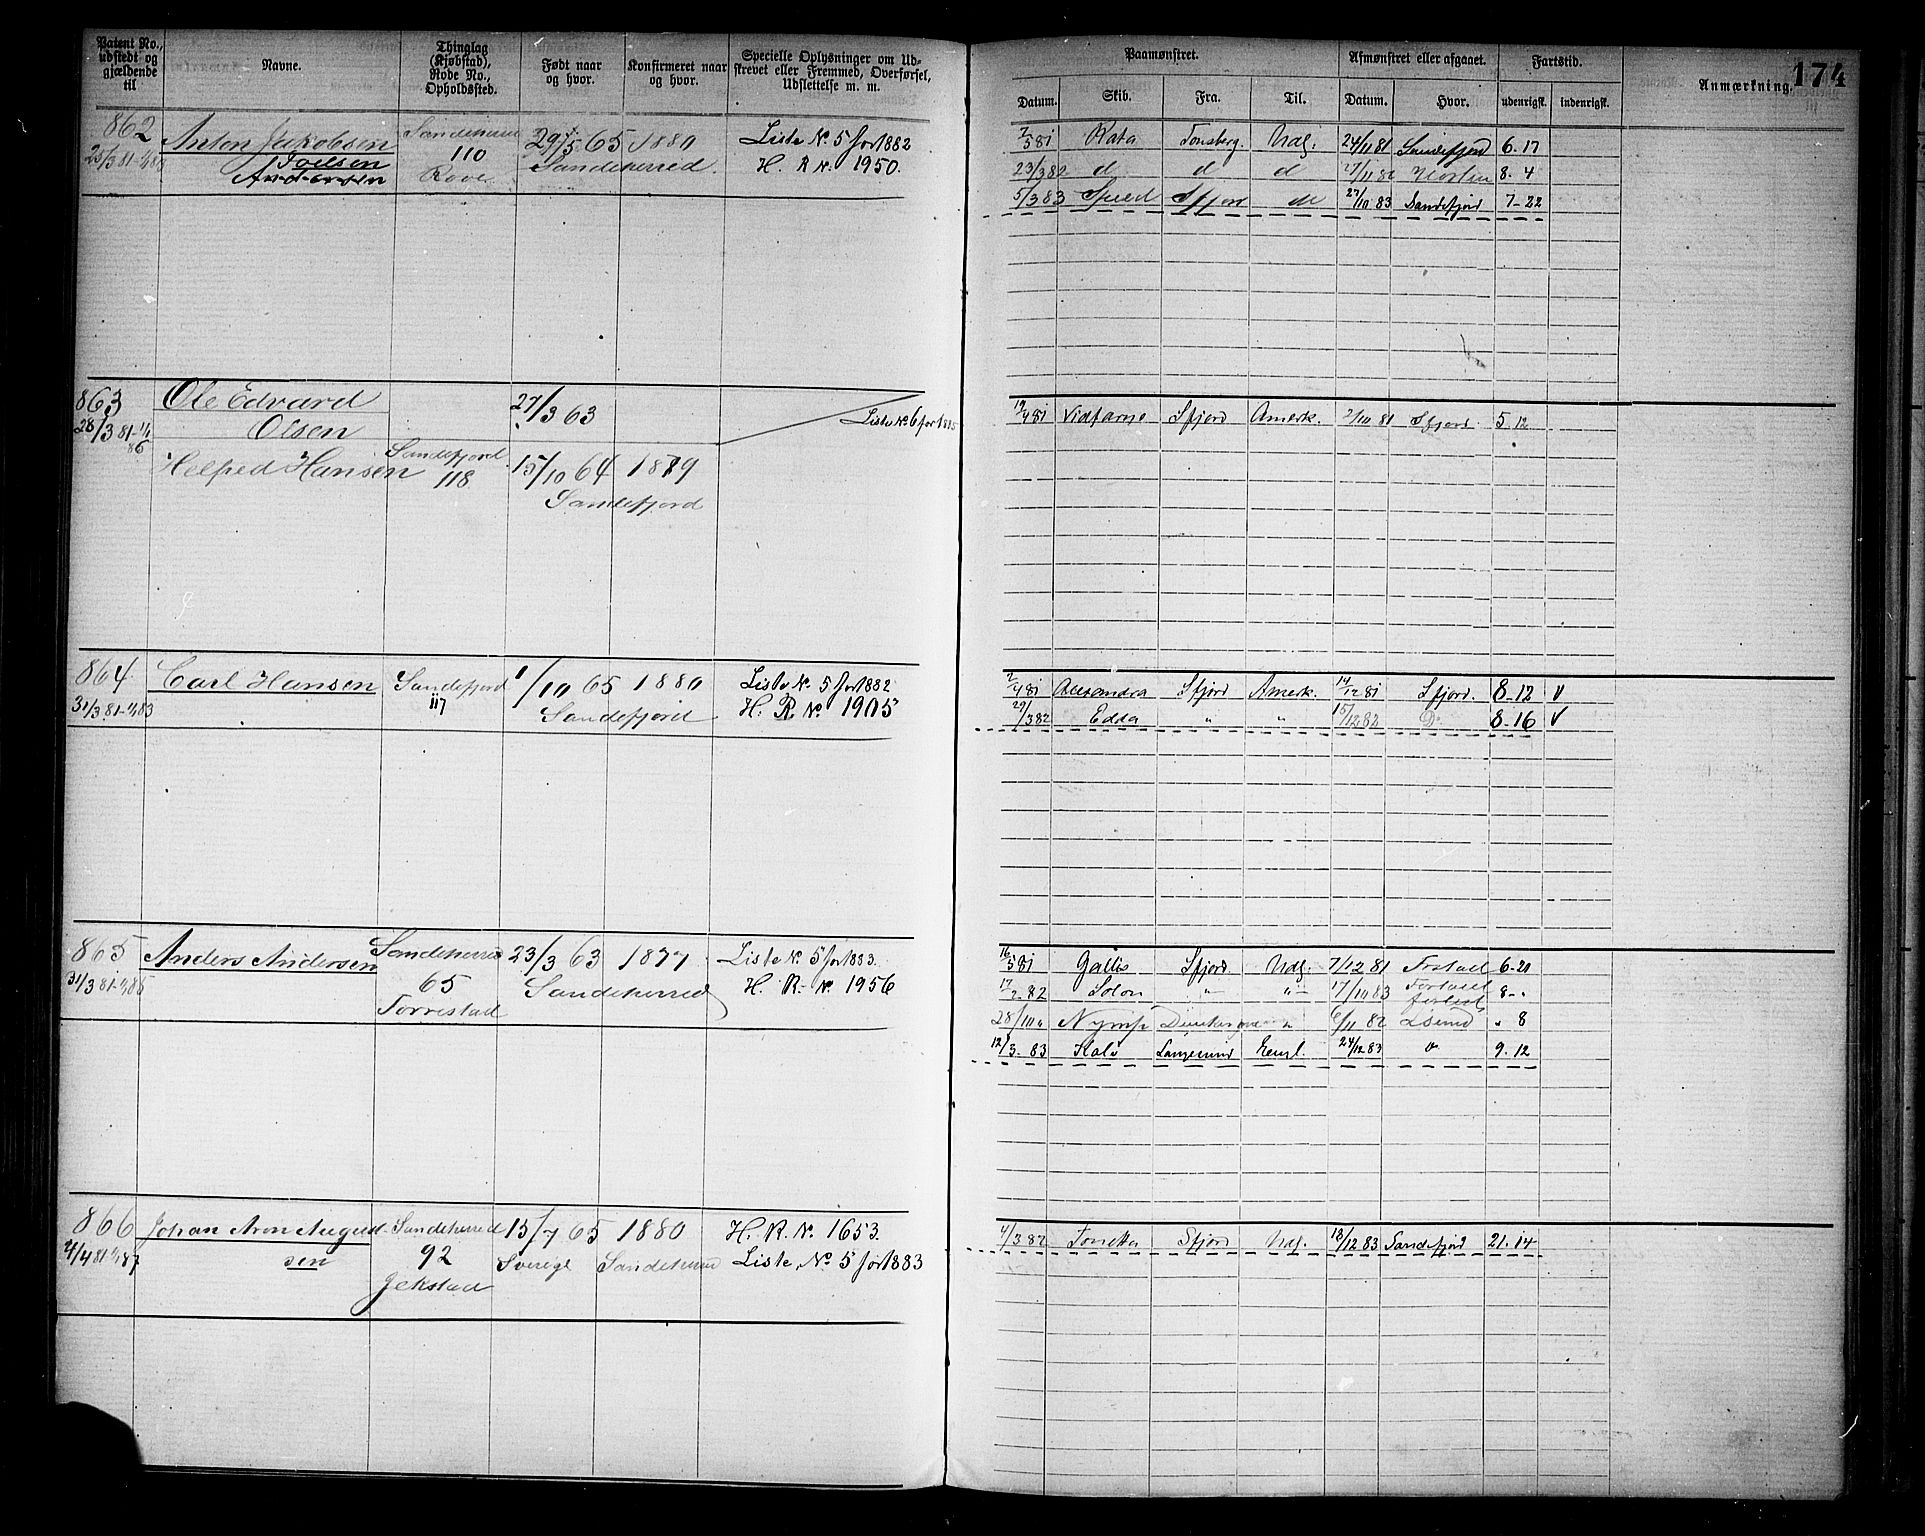 Patent No., udstedt og gjældende til
Navne.
Thinglag (Kjøbstad), Rode No., Opholdssted.
Født naar og hvor.
Konfirmeret naar og hvor.
Specielle Oplysninger om Udstrevet eller Fremmed, Overførsel, Udslettelse m. m.
Paamønstret.
Afmønstret eller afgaaet.
Fartstid.
Anmærkning.
174
Datum. Skib. Fra. Til. Datum. Hvor. udenrigsk. indenrigsk.
862 Anton Jakobsen 29/5 65 1880 Liste No. 5 for 1882
110 Sandeherred. H. R No. 1950.
Joelsen
Andersen
2/5 81 Kata Tønsberg Udl. 24/11 81 Sandefjord 6-17
23/3 82 d d d 8-4
5/3 83 Speed Sfjord d 27/10 83 Sandefjord 7-22
863 Ole Edvard 27/3 63
28/3 81-1/1 86 Olsen Liste No. 6 for 1885
Helfred Hansen Sandefjord 118 15/10 64 1879
Sandefjord
19/4 81 Vidfarne Sfjord Amerk. 2/10 81 Sfjord. 5-12
864 Carl Hansen Sandefjord 1/10 65 1880 Liste No. 5 for 1882
31/3 81-1/1 83 117 Sandefjord H. R No. 1905
2/4 81 Alexandra Sfjord Amerk. 14/12 81 Sfjord. 8-12 V
29/3 82 Edda " " 15/12 82 Do 8-16 V
865 Anders Andersen Sandeherred 23/3 63 1877 Liste No. 5 for 1883.
65 Sandeherred H. R. No. 1956
Torrestad
16/5 81 Sfjord Udl. 7/12 81 6-21
82 Solon " " 17/10 83 8-"
Nymf " 6/11 82 " 8
12/3 83 Langesund Engl. 24/12 83 9-12
866 Johan Aron August- Sandeherred 15/7 65 1880 H. R. No. 1653.
sen 92 Sverige Sandeherred Liste No. 5 for 1883
Jekstad
4/3 82 Sfjord Udl. 18/12 83 Sandefjord 21-14